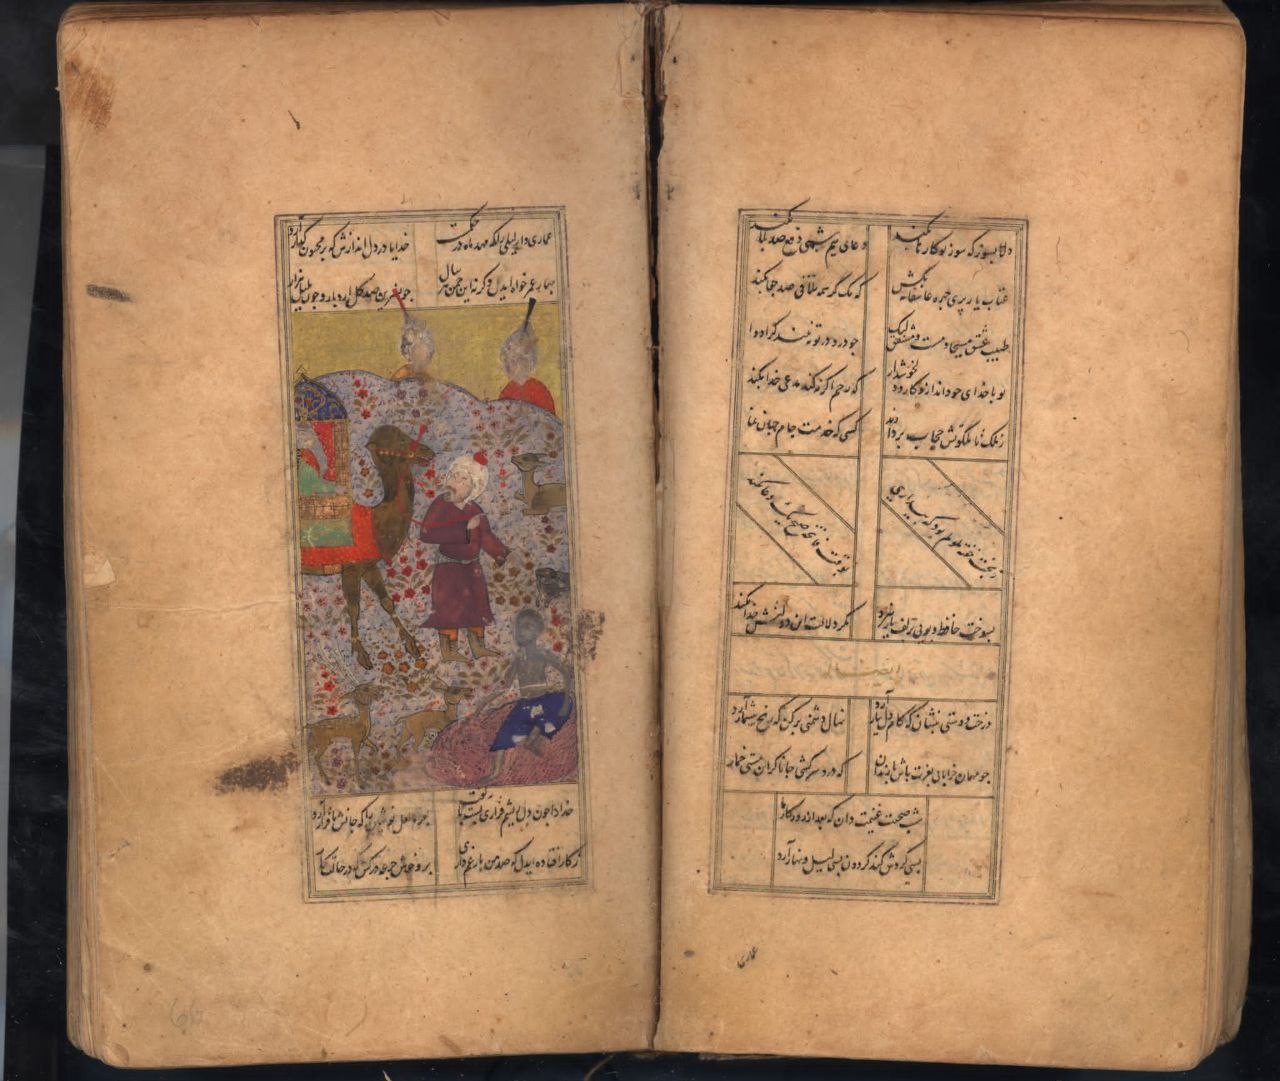 دلا بسوز که سوز تو کارها بکند
دعای نیم شبی دفع صد بلا بکند
عتاب یار پری چهره عاشقانه بکش
که یک کرشمه تلافی صد جفا بکند
طبیب عشق مسیحا دمست و مشفق لیک
چو درد در تو نبیند کرا دوا بکند
تو با خدای خود انداز کار و دل خوش دار
که رحم اگر نکند مدعی خدا بکند
ز ملک تا ملکوتش حجاب بردارند
کسی که خدمت جام جهان نما
ز بخت خفته ملولم بود که بیداری
بوقت فاتحه صبح یک دعا بکند
بسوخت حافظ و بویی ز زلف یار نبرد
مگر دلالت این دولتش صبا بکند
درخت دوستی بنشان که کام دل ببار آرد
نهال دشمنی برکن که رنج بیشمار آرد
چو مهمان خراباتی بعزت باش با رندان
که درد سر کشی جانا گر این مستی خمار
شب صحبت غنیمت دان که بعد از روزگار ما
بسی گردش کند گردون بسی لیل و نهار آرد
عماری
عماری دار لیلی را که مهد ماه در حکمست
خدایا در دل اندازش که بر مجنون گذار آرد
بهار عمر خواه ای دل و گرنه این چمن هر سال
چو نسرین صد گل آرد بار و چون بلبل هزار
خدا را چون دل ریشم قراری بست با زلفت
بفرما لعل نوشین را که جانش با قرار آرد
ز کار افتاده ای دل که صد من بار غم داری
برو خوش جرعه درکش که در حالت بکار